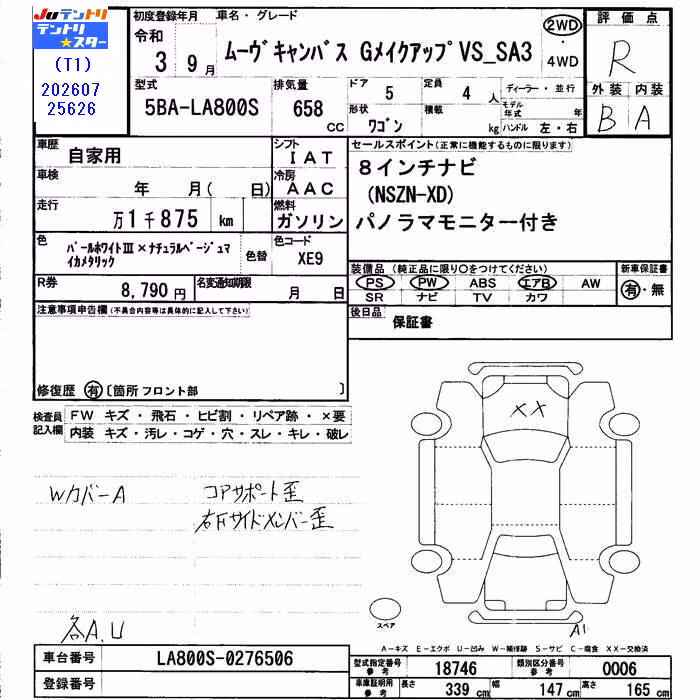 JUテントリ
テントリ★スター
(T1)
202607
25626
初度登録年月 車名・グレード
令和
3 9月
ムーヴキャンバス GメイクアップVS_SA3
2WD
・
4WD
評価点
R
外装 内装
B A
型式
5BA-LA800S
排気量
658
cc
ドア
5
定員
4 人
形状
ワゴン
積載
kg
ディーラー・並行
モデル年式 年
ハンドル 左・右
車歴
自家用
シフト
IAT
車検
年 月( 日)
冷房
AAC
走行
万1千875 km
燃料
ガソリン
色
パールホワイトⅢ×ナチュラルベージュマイカメタリック
色替
色コード
XE9
R券
8,790 円
名変通知期限
月 日
セールスポイント(正常に機能するものに限ります)
8インチナビ
(NSZN-XD)
パノラマモニター付き
装備品(純正品に限り○をつけてください)
PS PW ABS エアB AW
SR ナビ TV カワ
新車保証書
有・無
後日品
保証書
注意事項申告欄(不具合内容等は具体的に記入して下さい)
修復歴 有 〔箇所 フロント部 〕
検査員記入欄
FW キズ・飛石・ヒビ割・リペア跡・×要
内装 キズ・汚レ・コゲ・穴・スレ・キレ・破レ
Wカバー A
コアサポート歪
右Fサイドメンバー歪
各A.U
XX
スペア
A1
A-キズ E-エクボ U-凹み W-補修跡 S-サビ C-腐食 XX-交換済
車台番号
LA800S-0276506
登録番号
型式指定番号
参考
18746
類別区分番号
参考
0006
車庫証明用
参考
長さ 339 cm 幅 147 cm 高さ 165 cm